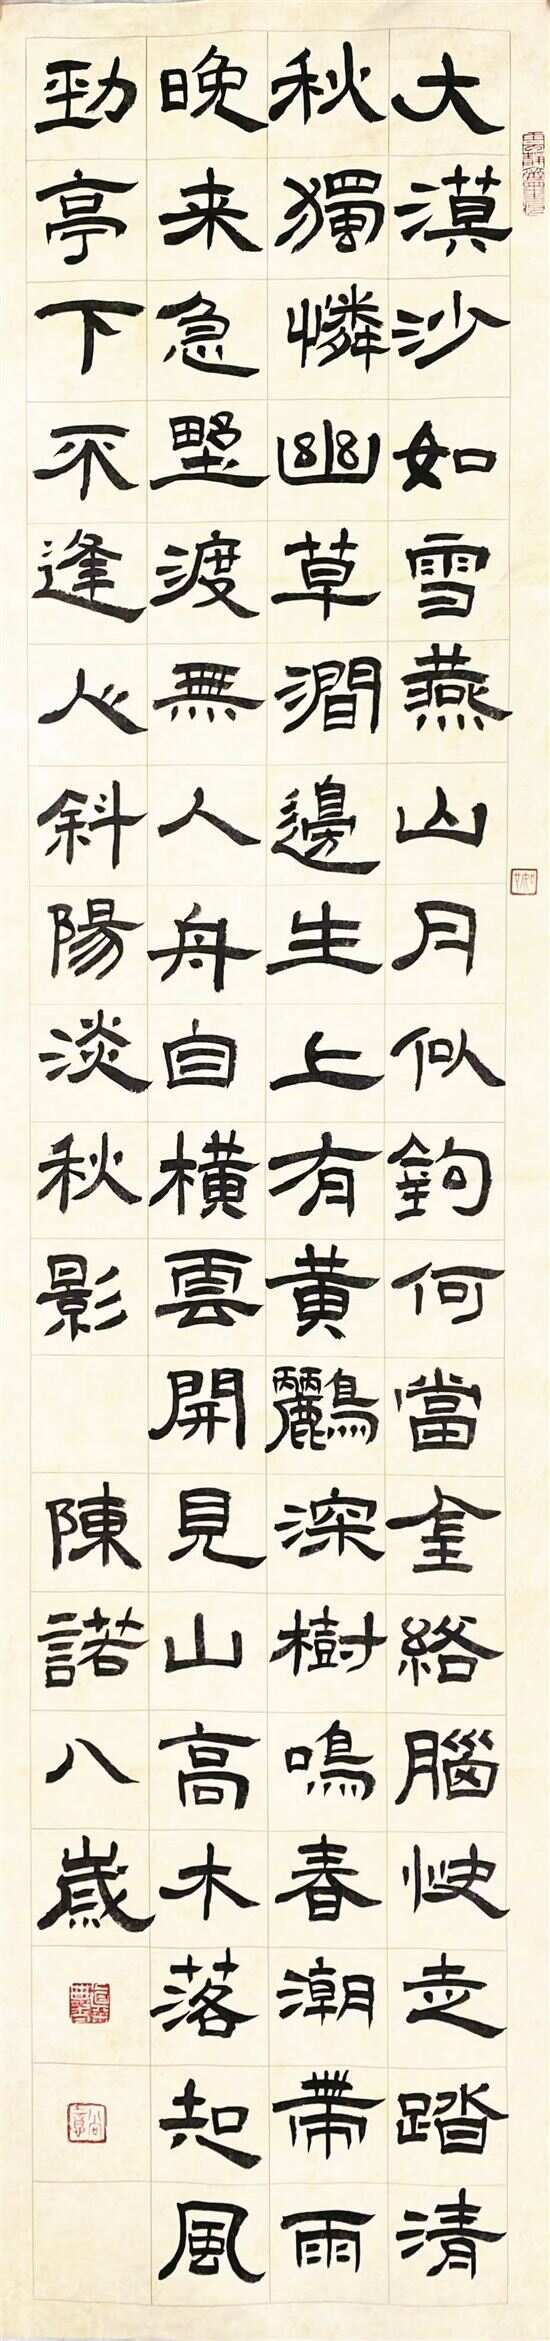 大漠沙如雪燕山月似鉤何當金絡腦快走踏清
秋獨憐幽草澗邊生上有黃鸝深樹鳴春潮帶雨
晚来急野渡無人舟自橫雲開見山高木落知風
勁亭下不逢人斜陽淡秋影 陳諾八歲